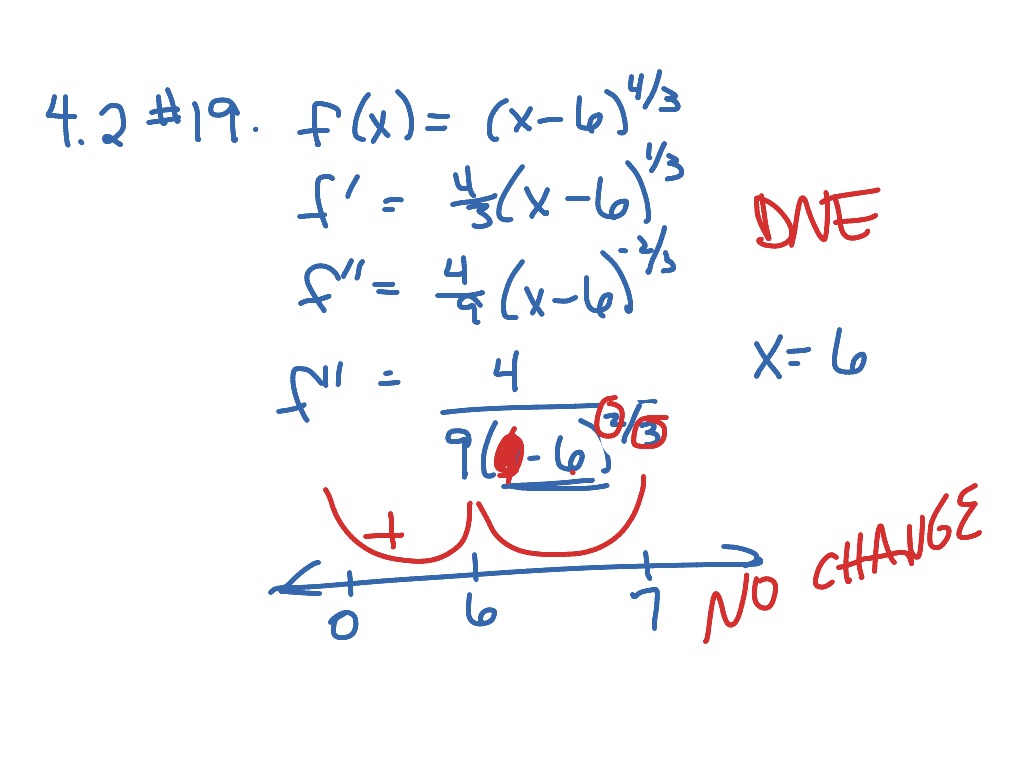 4.2 #19. f(x) = (x-6)^4/3
f' = 4/3 (x-6)^1/3
DNE
f'' = 4/9 (x-6)^-2/3
x = 6
f'' = 4 / 9( - 6)^2/3
+
NO CHANGE
0 6 7